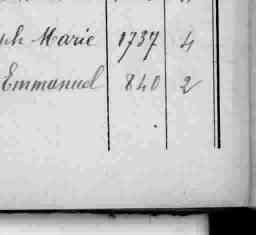 ph Marie 1737 4
Emmanuel 840 2